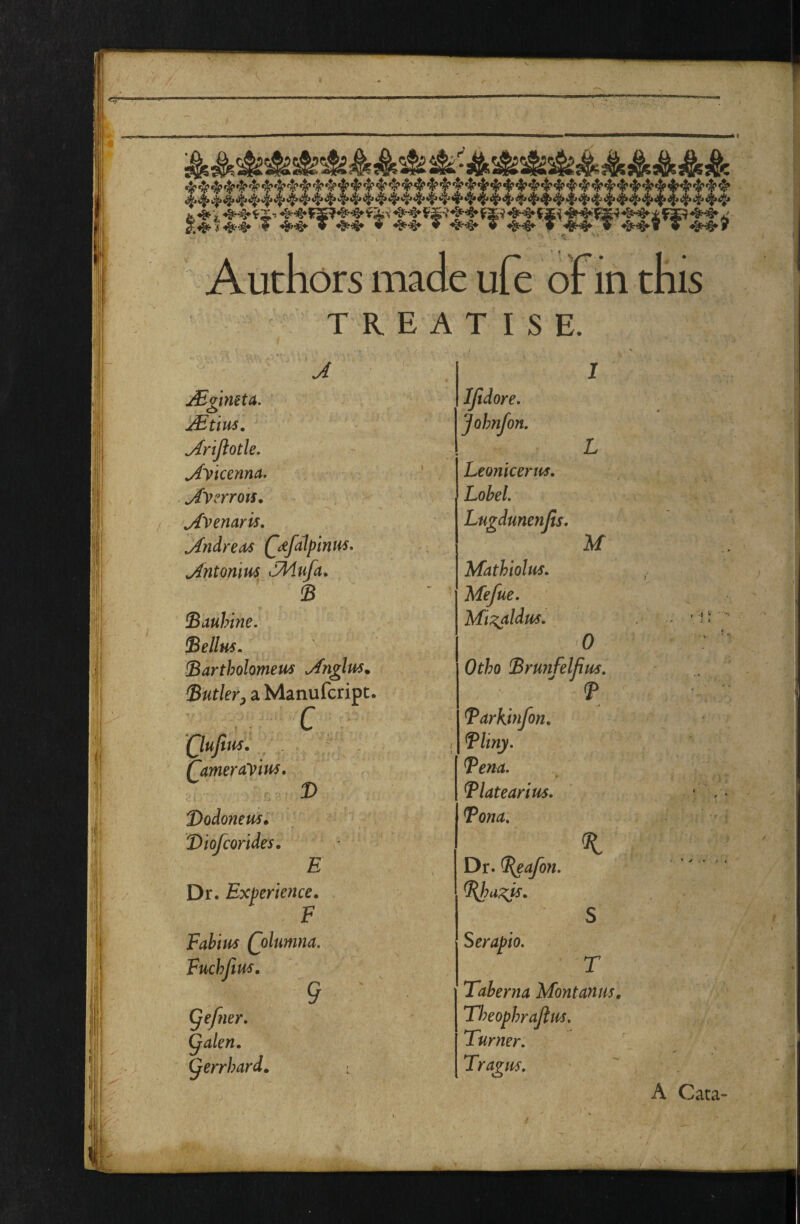 Authors made uſe of in this
TREATISE.
A
Ægineta.
Ætius.
Ariſtotle.
Avicenna.
Averrois.
Avenaris.
Andreas Cæſalpinus.
Antonius Muſa.
B
Bauhine.
Bellus.
Bartholomeus Anglus.
Butler, a Manuſcript.
C
Cluſius.
Cameravius.
D
Dodoneus.
Dioſcorides.
E
Dr. Experience.
F
Fabius Columna.
Fuchſius.
G
Geſner.
Galen.
Gerrhard.
I
Iſidore.
Johnſon.
L
Leonicerus.
Lobel.
Lugdunenſis.
M
Mathiolus.
Meſue.
Mizaldus.
O
Otho Brunfelſius.
P
Parkinſon.
Pliny.
Pena.
Platearius.
Pona.
R
Dr. Reaſon.
Rhazis.
S
Serapio.
T
Taberna Montanus.
Theophraſtus.
Turner.
Tragus.
A Cata-